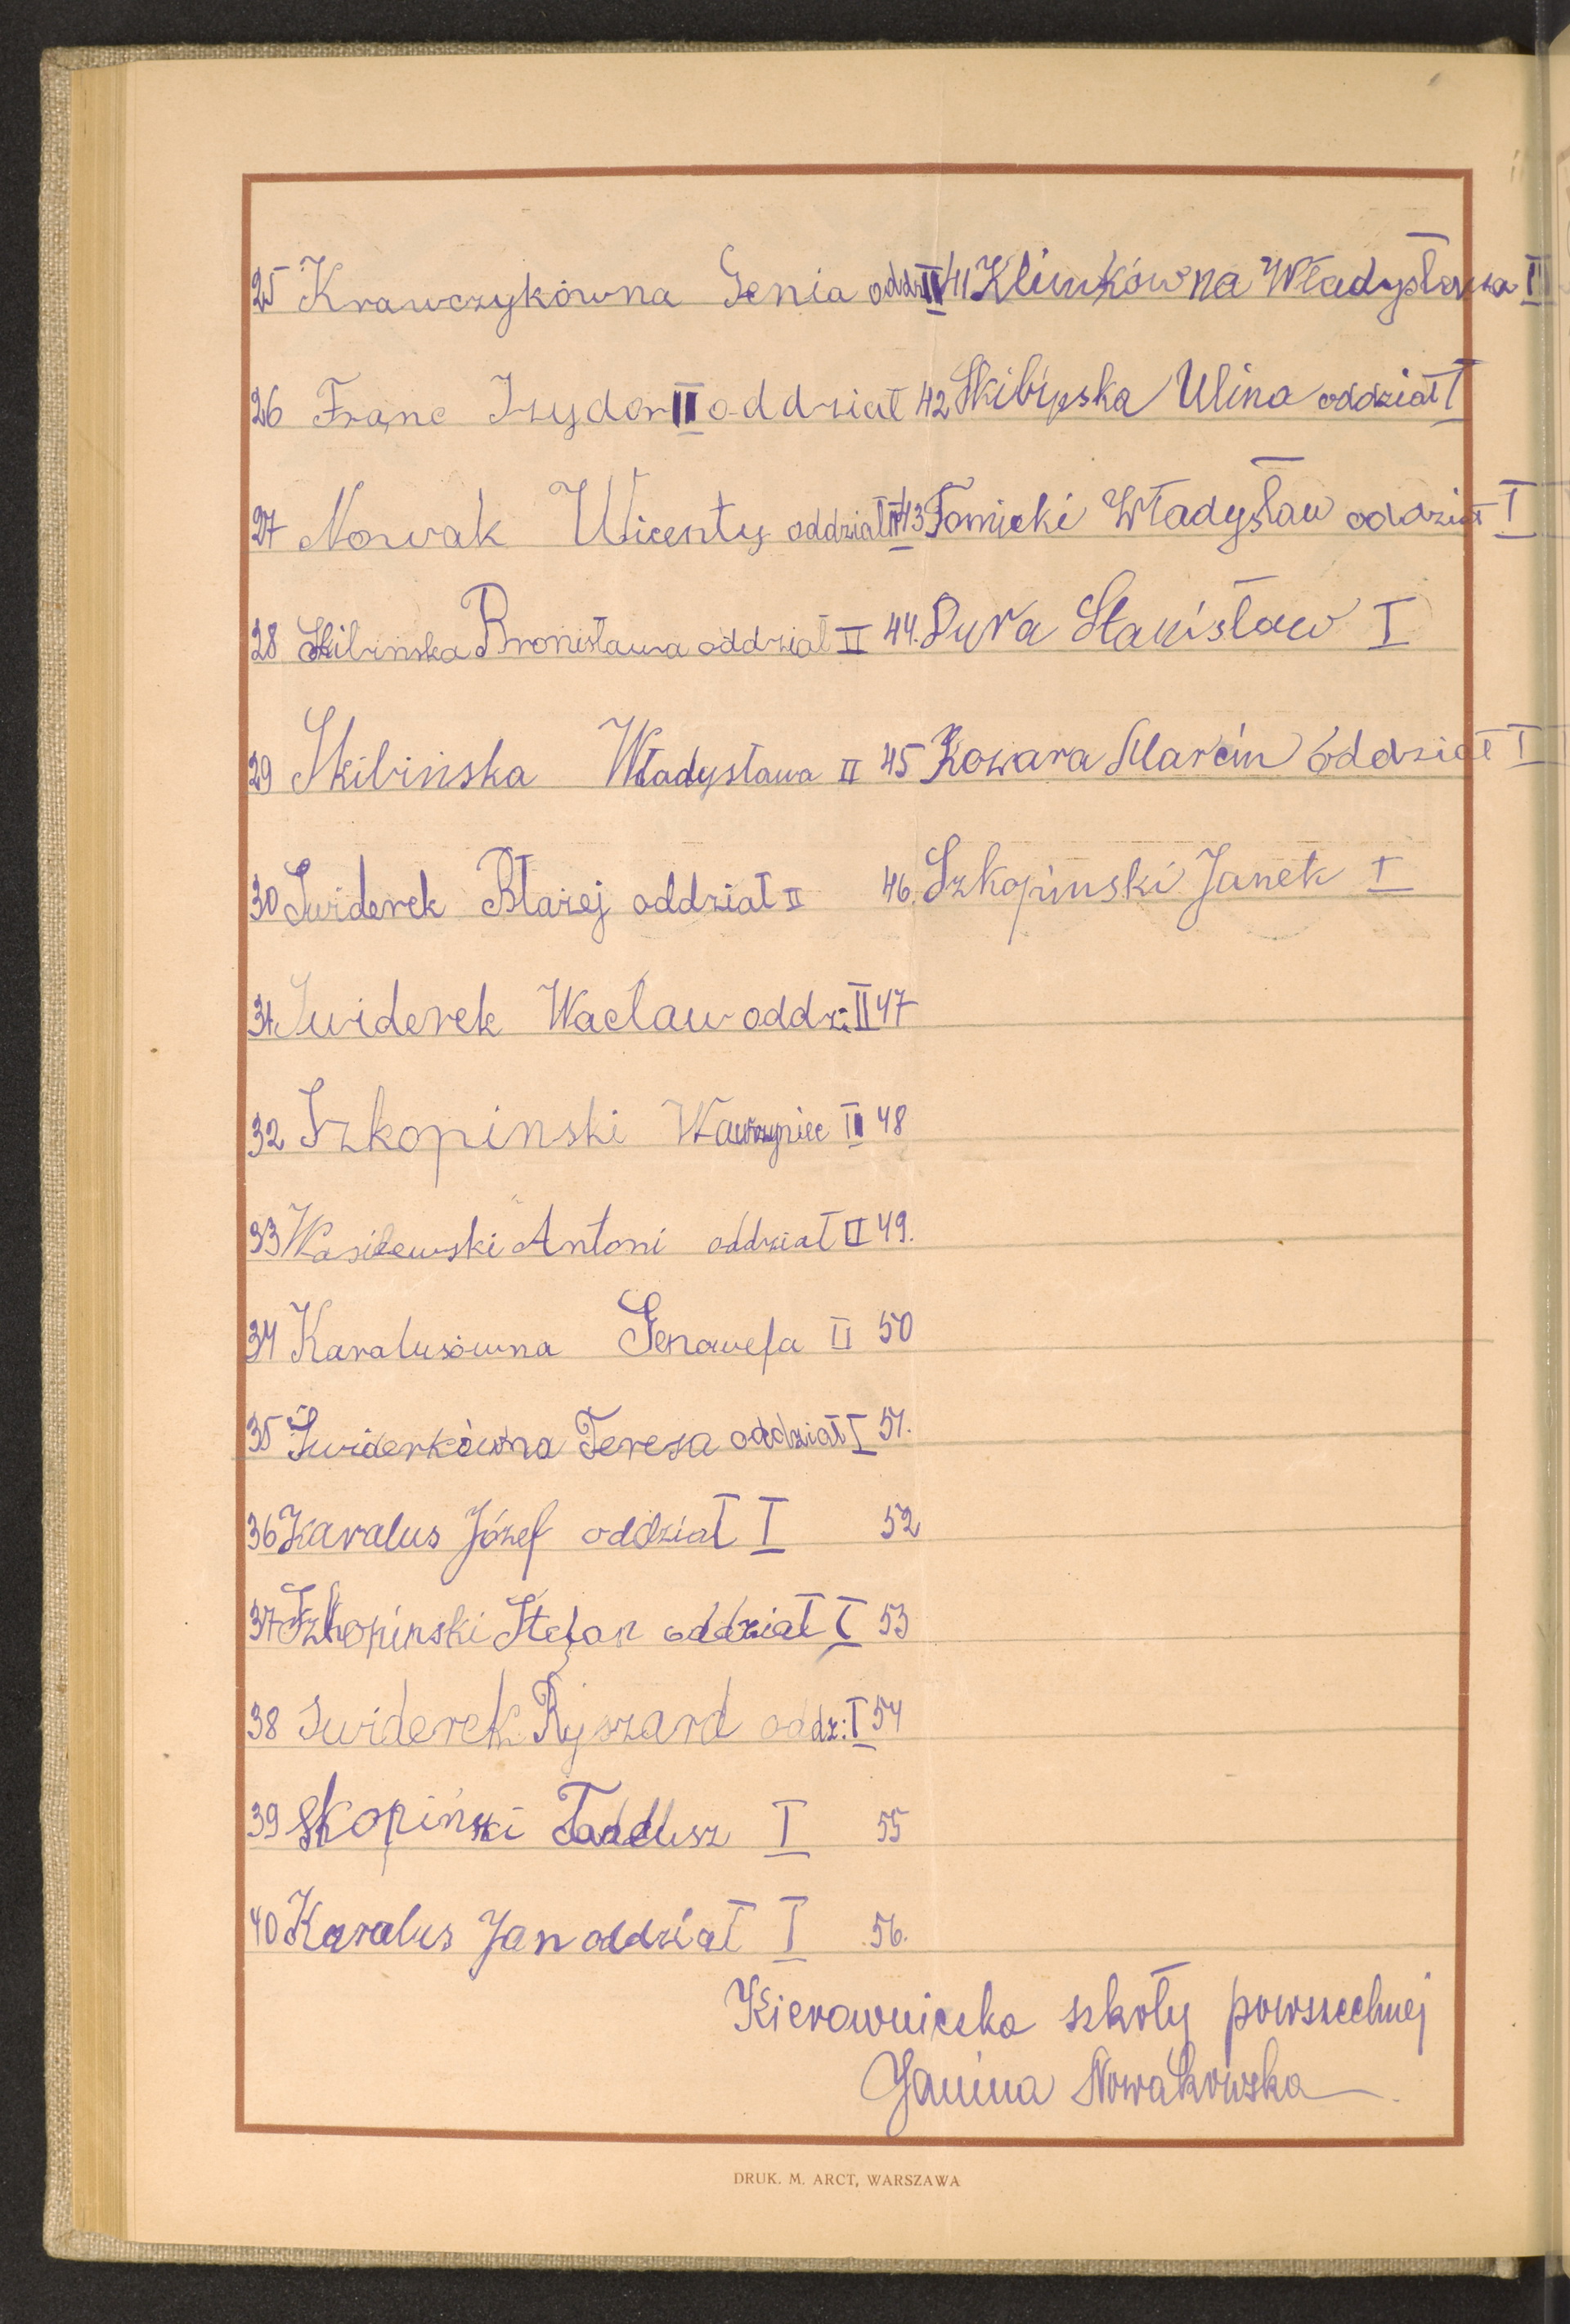 25 Krawczykówna Genia oddz II
26 Franc Izydor II oddział
27 Nowak Wicenty oddział II
28 Skibinska Bronisława oddział II
29 Skibinska Władysława II
30 Swiderek Błażej oddział II
31 Swiderek Wacław oddz: II
32 Szkopinski Wawrzyniec II
33 Wasilewski Antoni oddział II
34 Karalusówna Genowefa II
35 Swiderkówna Teresa oddział I
36 Karalus Józef oddział I
37 Szkopinski Stefan oddział I
38 Swiderek Ryszard oddz: I
39 Skopiński Tadeusz I
40 Karalus Jan oddział I
41 Klimkówna Władysława I
42 Skibinska Ulina oddział I
43 Tomicki Władysław oddział I
44. Dura Stanisław I
45 Kozara Marcin oddział I
46. Szkopinski Janek I
47
48
49.
50
51.
52
53
54
55
56.
Kierowniczka szkoły powszechnej
Janina Nowakowska
DRUK. M. ARCT, WARSZAWA